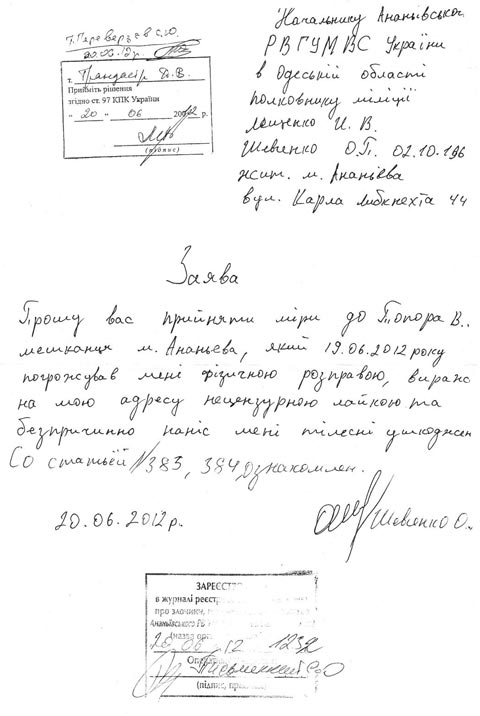 т. Переверзєв С.Ю.
20.06.12р.
т.
Прийміть рішення
згідно ст. 97 КПК України
" 20 " 06 2012 р.
(підпис)
Начальнику Ананьївського
РВ ГУМВС України
в Одеській області
полковнику міліції
Лещенко И. В.
Шевченко О.П. 02.10.196
жит. м. Ананьєва
вул. Карла Либкнехта 44
Заява
Прошу вас прийняти міри до Топора В..
мешканця м. Ананьєва, який 19.06.2012 року
погрожував мені фізичною розправою, вираж
на мою адресу нецензурною лайкою та
безпричинно наніс мені тілесні ушкоджен
Со статьёй №383, 384 ознакомлен.
20.06.2012р. Шевченко О.
ЗАРЕЄСТР
в журналі реєстр
про злочини,
Ананьївського РВ
(назва орг
20 06 12 1232
Опер
(підпис, пр